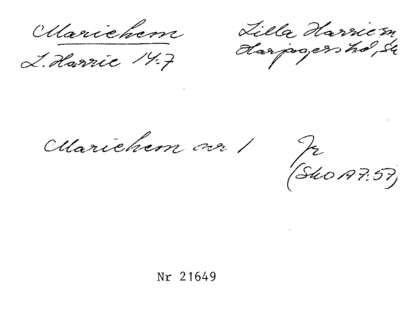 Mariehem
Lilla Harrie sn,
L. Harrie 14:7
Harjagers hd, Sk
Mariehem nr 1
Jr
(Sko A7:57)
Nr 21649